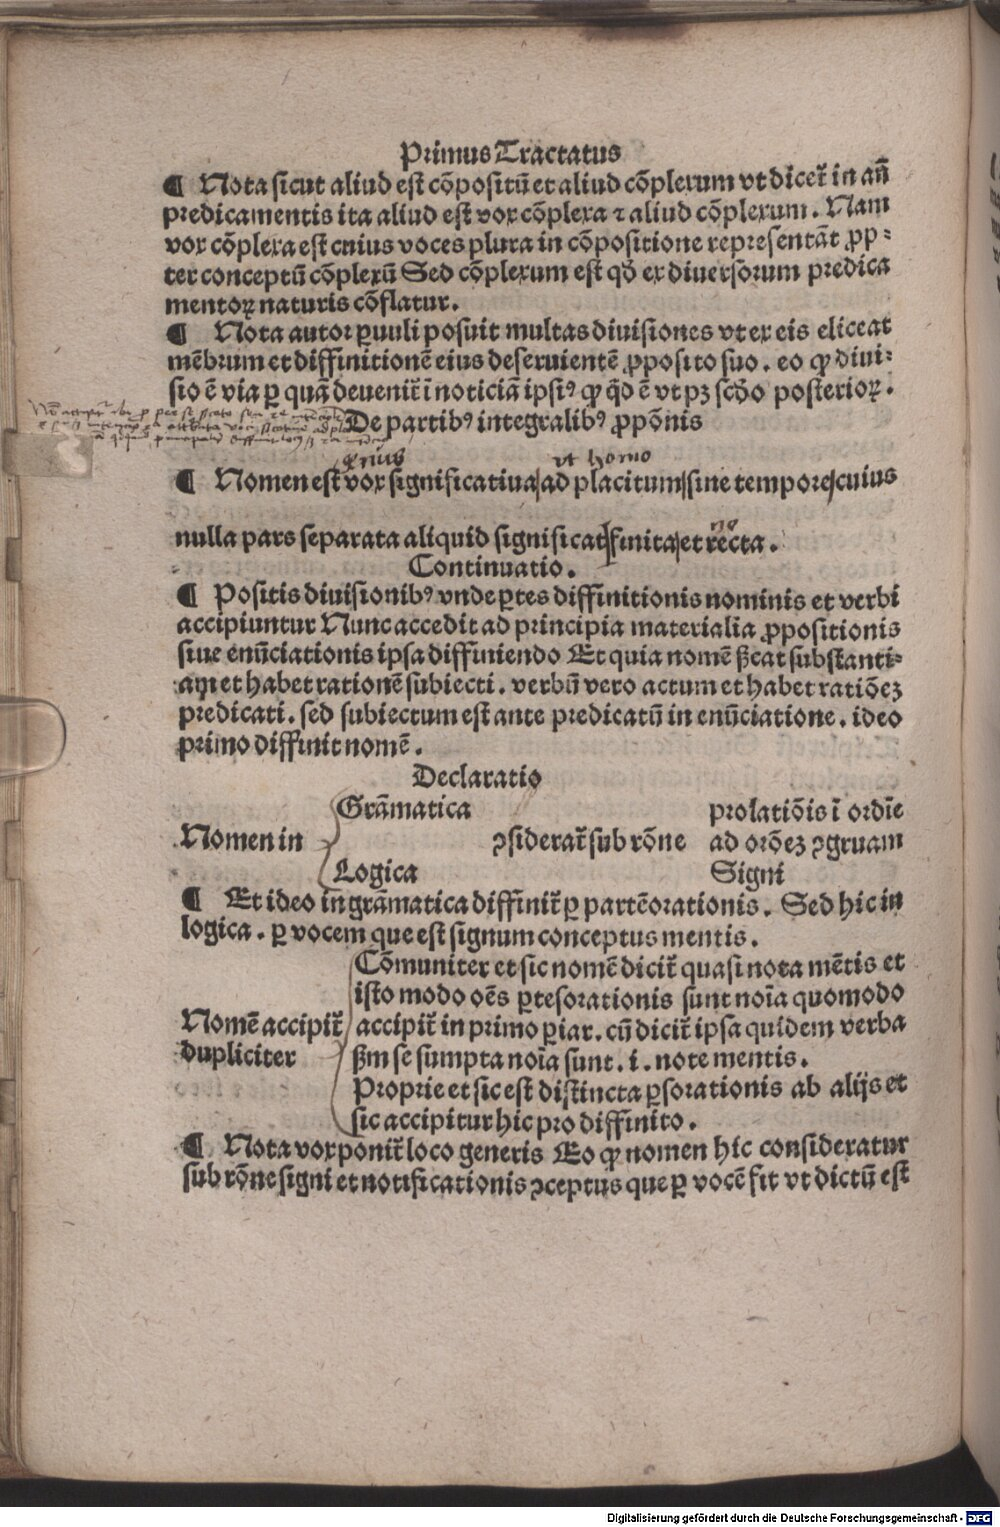 Primus Tractatus
¶ Nota sicut aliud est cōpositū et aliud cōplexum vt dicet᷑ in añ
predicamentis ita aliud est vox cōplexa ⁊ aliud cōplexum. Nam
vox cōplexa est cuius voces plura in cōpositione representāt ꝓp⸗
ter conceptū cōplexū Sed cōplexum est qd̄ ex diuersorum predica
mentoꝝ naturis cōflatur.
¶ Nota autor ꝑuuli posuit multas diuisiones vt ex eis eliceat
mēbrum et diffinitionē eius deseruientē ꝓposito suo. eo ꝙ diui⸗
sio ē via ꝑ quā deuenit᷑ ī noticiā ipsiꝰ ꝙ qd̄ ē vt pꝫ scd̄o posterioꝝ.
De partibꝰ integralibꝰ ꝓpōnis
vt homo
¶ Nomen est vox significatiua|ad placitum|sine tempore|cuius
nulla pars separata aliquid significat|finita|et recta.
Continuatio.
¶ Positis diuisionibꝰ vnde ꝑtes diffinitionis nominis et verbi
accipiuntur Nunc accedit ad principia materialia ꝓpositionis
siue enūciationis ipsa diffiniendo Et quia nomē ßcat substanti⸗
am et habet rationē subiecti. verbū vero actum et habet ratiōeꝫ
predicati. sed subiectum est ante predicatū in enūciatione. ideo
primo diffinit nomē.
Declaratio
Grāmatica prolatiōis ī ordīe
Nomen in ꝯsiderat᷑ sub rōne ad orōeꝫ ꝯgruam
Logica Signi
¶ Et ideo in grāmatica diffinit᷑ ꝑ partē orationis. Sed hic in
logica. ꝑ vocem que est signum conceptus mentis.
Cōmuniter et sic nomē dicit᷑ quasi nota mētis et
isto modo oēs ꝑtes orationis sunt noīa quomodo
Nomē accipit᷑ accipit᷑ in primo ꝑiar. cū dicit᷑ ipsa quidem verba
dupliciter ßm se sumpta noīa sunt .i. note mentis.
Proprie et sic est distincta ꝑs orationis ab alijs et
sic accipitur hic pro diffinito.
¶ Nota vox ponit᷑ loco generis Eo ꝙ nomen hic consideratur
sub rōne signi et notificationis ꝯceptus que ꝑ vocē fit vt dictū est
Digitalisierung gefördert durch die Deutsche Forschungsgemeinschaft - DFG